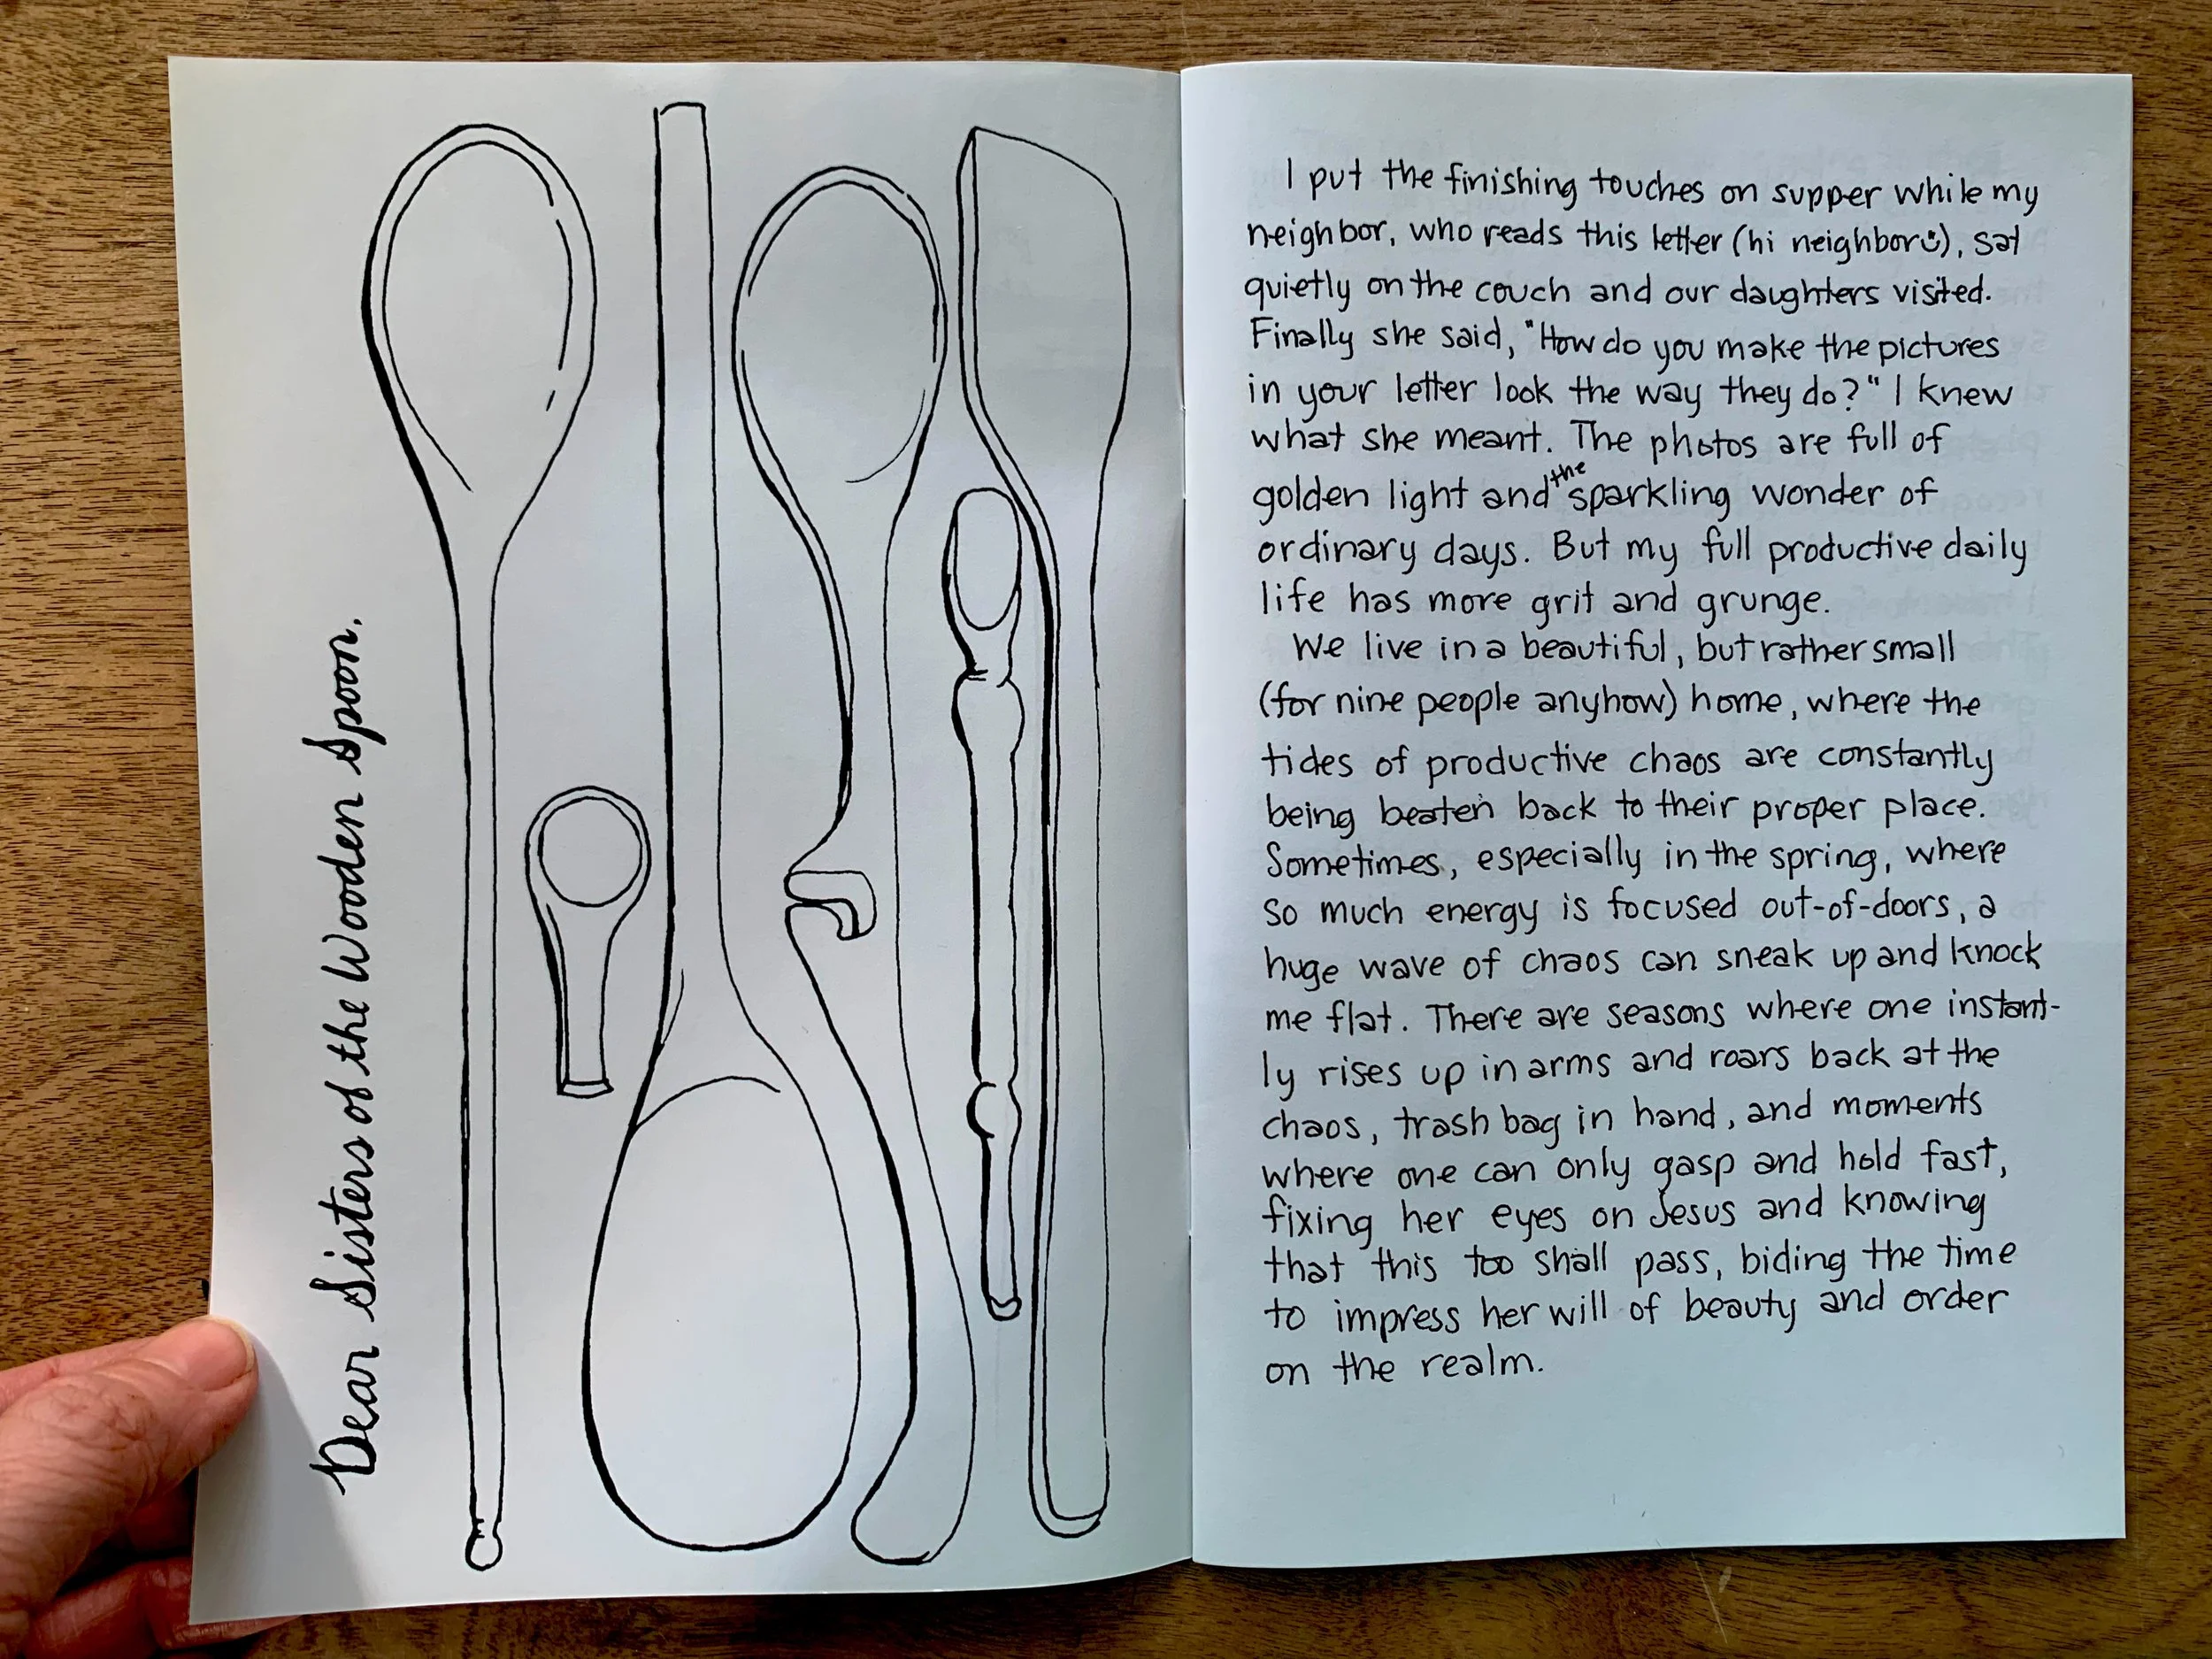 Dear Sisters of the Wooden Spoon.
I put the finishing touches on supper while my
neighbor, who reads this letter (hi neighbor☺), sat
quietly on the couch and our daughters visited.
Finally she said, "How do you make the pictures
in your letter look the way they do?" I knew
what she meant. The photos are full of
golden light and the sparkling wonder of
ordinary days. But my full productive daily
life has more grit and grunge.
We live in a beautiful, but rather small
(for nine people anyhow) home, where the
tides of productive chaos are constantly
being beaten back to their proper place.
Sometimes, especially in the spring, where
so much energy is focused out-of-doors, a
huge wave of chaos can sneak up and knock
me flat. There are seasons where one instant-
ly rises up in arms and roars back at the
chaos, trash bag in hand, and moments
where one can only gasp and hold fast,
fixing her eyes on Jesus and knowing
that this too shall pass, biding the time
to impress her will of beauty and order
on the realm.